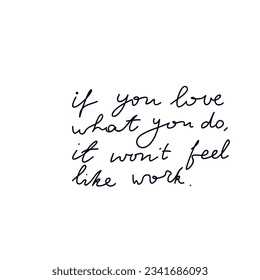 if you love
what you do,
it won't feel
like work.
shutterstock.com · 2341686093